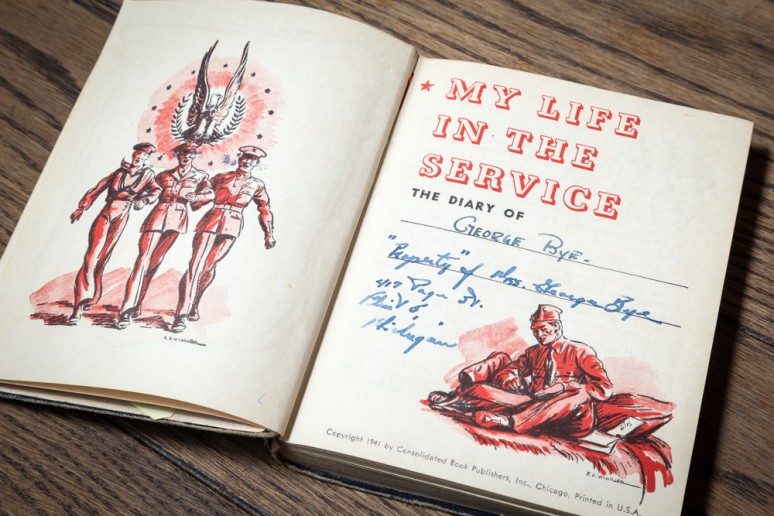 MY LIFE
IN THE
SERVICE
THE DIARY OF
GEORGE BYE.
"Property" of Mrs. George Bye
417 Page St.
Flint 5
Michigan
Copyright 1941 by Consolidated Book Publishers, Inc., Chicago, Printed in U.S.A.